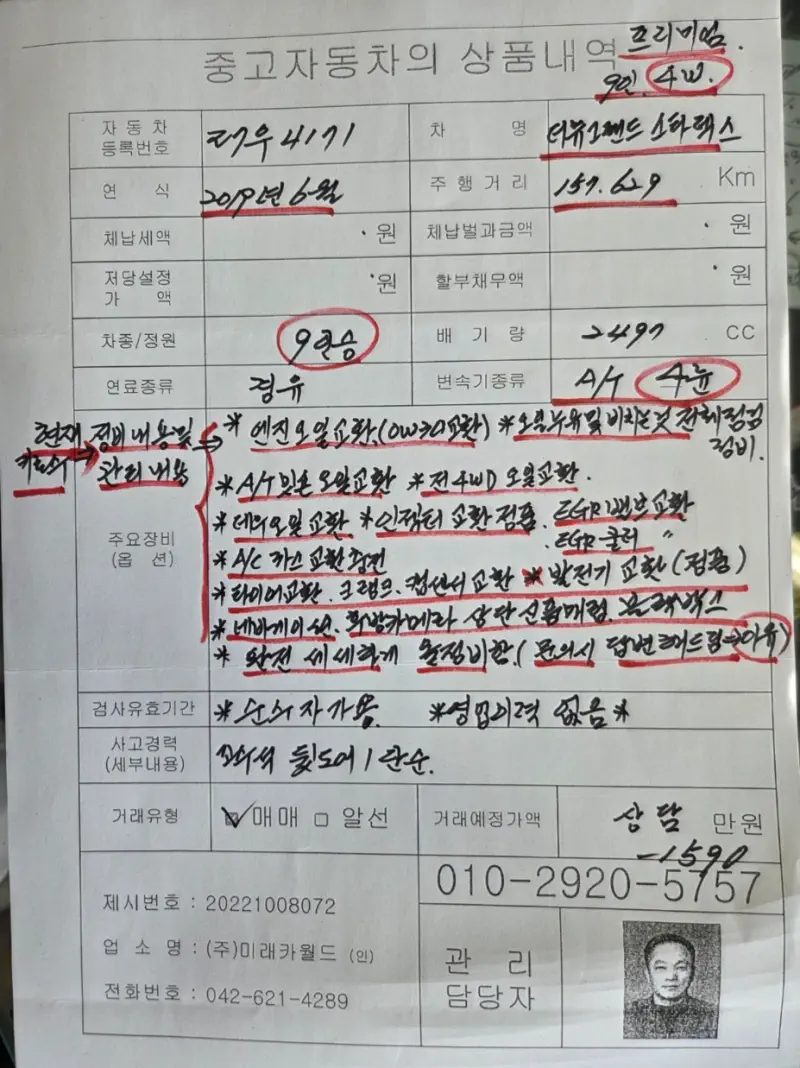 중고자동차의 상품내역 프리미엄.
9인. 4W.
자동차 등록번호 우4171 차 명 더뉴그랜드 스타렉스
연 식 2019년 6월 주행거리 157.629 Km
체납세액 . 원 체납벌과금액 . 원
저당설정 가 액 . 원 할부채무액 . 원
차종/정원 9인승 배 기 량 2497 cc
연료종류 경유 변속기종류 A/T 4륜
현재 정비내용및 → * 엔진오일교환.(0W30교환) * 오일누유및 비치는것 전체점검
키로수 → 관리내용 정비.
* A/T 밋숀 오일교환 * 전4WD 오일교환.
주요장비 (옵 션)
* 데후오일교환 * 인젝터 교환 정품. EGR밸브교환
. EGR 쿨러 〃
* A/C 가스 교환충전
* 타이어교환. 크랭크. 캠센서교환 * 발전기 교환(정품)
* 네비게이션. 후방카메라 상단신품매립. 블랙박스
* 완전 세세하게 올정비함.( 문의시 답변해드림⇒이유)
검사유효기간 * 순수자가용. * 영업이력 없음 *
사고경력 (세부내용) 조수석 뒷도어 1 단순.
거래유형 ☑ 매매 □ 알선 거래예정가액 상담 만원
-1590
010-2920-5757
제시번호 : 20221008072
업 소 명 : (주)미래카월드 (인)
전화번호 : 042-621-4289
관 리
담당자